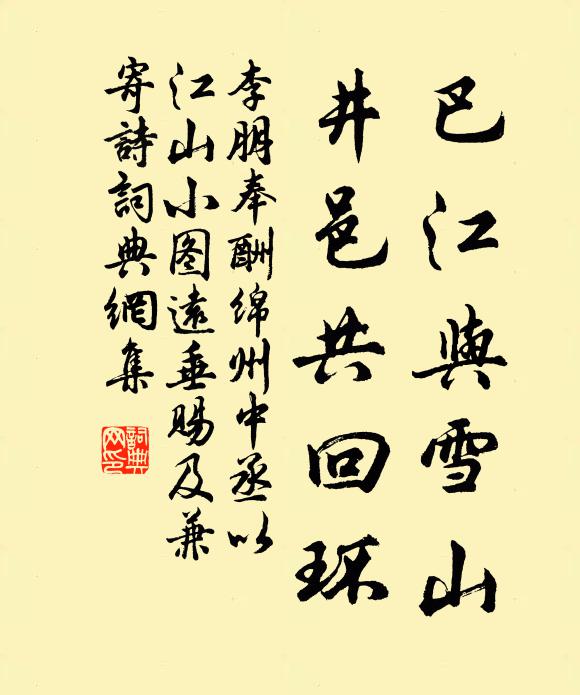 巴江與雪山
井邑共回环
李朋奉酬绵州中丞以
江山小图遠垂賜及兼
寄詩詞典網集
詞典
网印